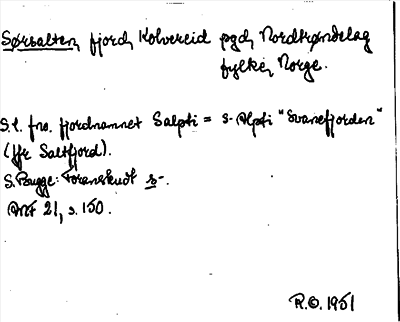 Sørsalten, fjord, Kolvereid pgd, Nordtrøndelag
fylke, Norge.
S.l. fno. fjordnamnet Salpti = s-Alpti "Svanefjorden"
(jfr Saltfjord).
S. Bugge: Foranskudt s-.
ANF 21, s. 150.
R.O. 1951